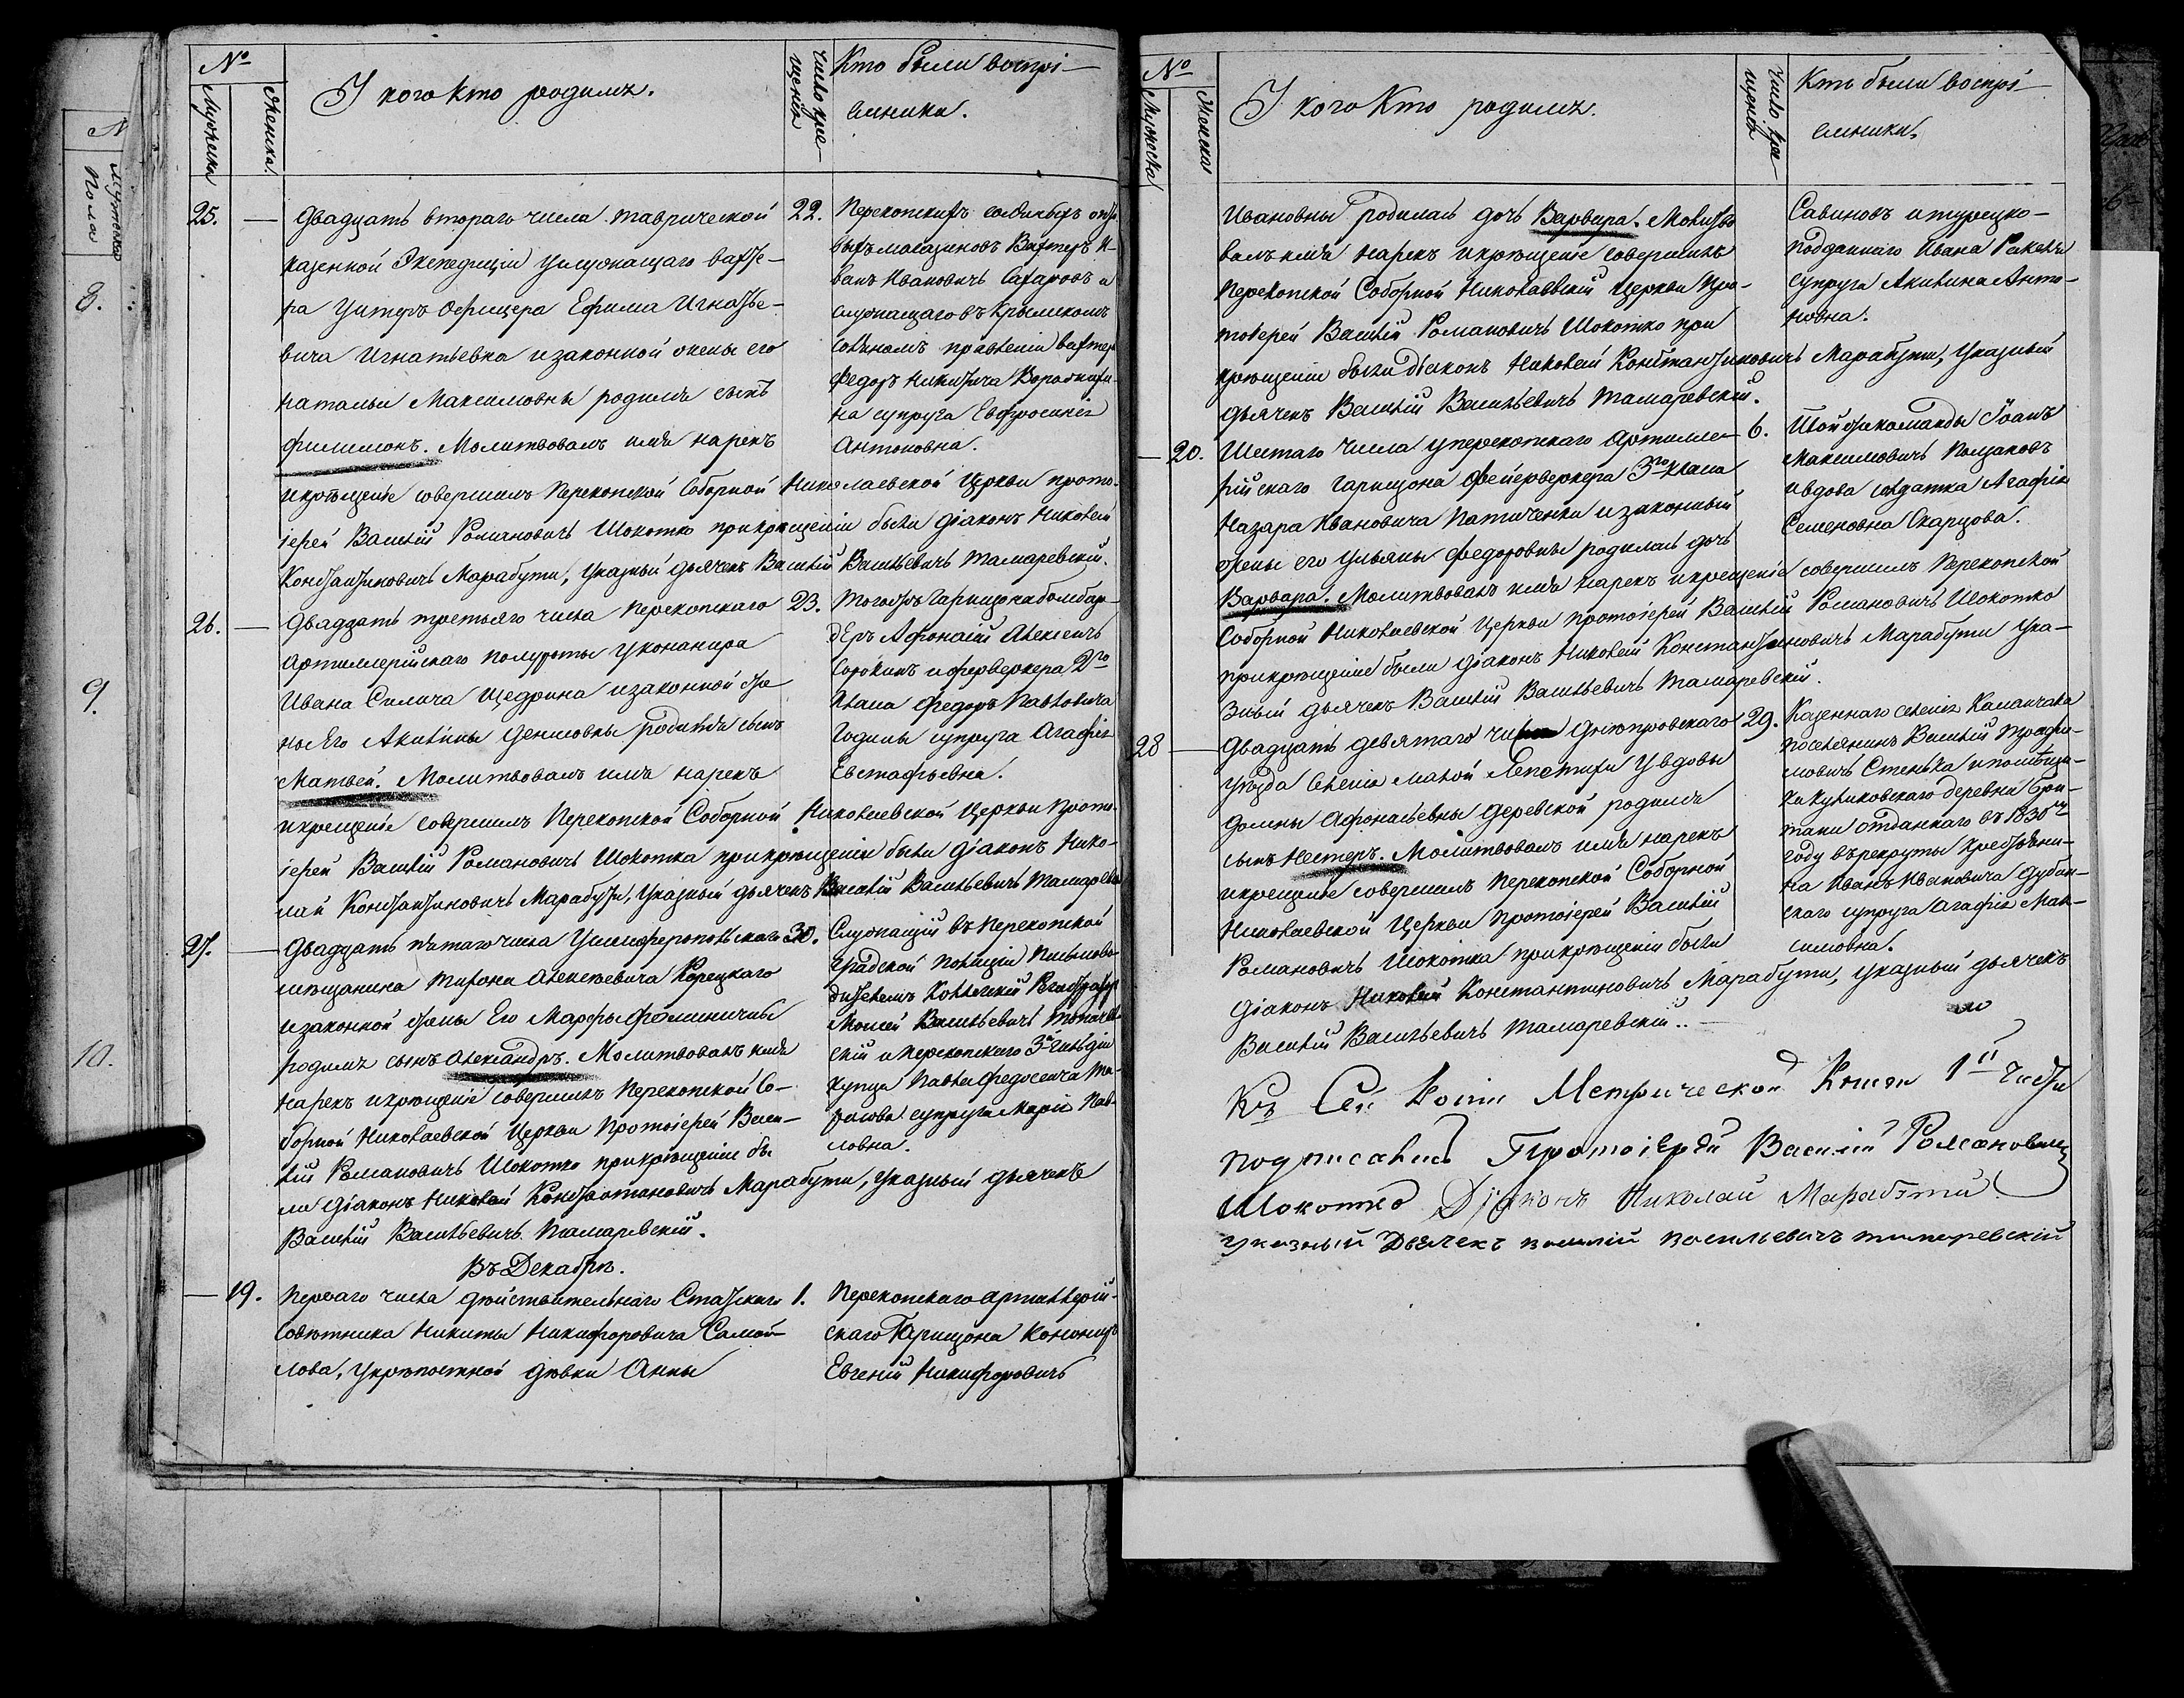 №
Мужеска
Женска
У кого кто родилъ.
Число кре-
щенія
Кто были воспрі-
емники.
25.
Двадцать втораго числа Таврической
казенной Экспедиціи у служащаго вахте-
ра Унтеръ Офицера Ефима Игнатье-
вича Игнатьева и законной жены его
Натальи Максимовны родился сынъ
Филимонъ. Молитвовалъ имя нарекъ
и крещеніе совершилъ Перекопской Соборной Николаевской Церкви прото-
іерей Василій Романовичъ Шокотко при крещеніи были діаконъ Николай
Константиновичъ Марабути, Указный дьячекъ Василій Васильевичъ Тамаревскій.
22.
Перекопскихъ соляныхъ
магазиновъ Вахтеръ И-
ванъ Ивановичъ Сахаровъ и
служащаго въ Крымскомъ
соляномъ правленіи вахтера
Федора Никитича
на супруга Евфросинія
Антоновна.
26.
Двадцать третьяго числа Перекопскаго
Артиллерійскаго полуроты у конанира
Ивана Силича Щедрина и законной же
ны Его Акилины Денисовны родился сынъ
Матвей. Молитвовалъ имя нарекъ
и крещеніе совершилъ Перекопской Соборной Николаевской Церкви Прото-
іерей Василій Романовичъ Шокотка при крещеніи были діаконъ Нико-
лай Константиновичъ Марабути, Указный дьячекъ Василій Васильевичъ Тамаревс
23.
Тогожъ Гарнизона бомбар-
деръ Афонасій Алексеичъ
Сорокинъ и ферверкера 2го
класа Федора Павловича
Година супруга Агафія
Евстафьевна.
27.
Двадцать пятаго числа У симферопольскаго
мещанина Тирона Алексеевича Корецкаго
и законной жены Его Марфы Фоминичны
родился сынъ Александръ. Молитвовалъ имя
нарекъ и крещеніе совершилъ Перекопской Со-
борной Николаевской Церкви Протоіерей Васи-
лій Романовичъ Шокотко при крещеніи бы
ли діаконъ Николай Константиновичъ Марабути, Указный дьячекъ
Василій Васильевичъ Тамаревскій.
30.
Служащій въ Перекопской
Градской Полиціи Письмово-
дителемъ Коллежскій Регистраторъ
Моисей Васильевичъ
скій и Перекопскаго 3й гильдіи
купца Павла Федосеича
супруга Марія Пав-
ловна.
Въ Декабре.
19.
Перваго числа действительнаго Статскаго
Советника Никиты Никифоровича Самой-
лова, у крепостной девки Анны
1.
Перекопскаго Артиллерій-
скаго Гарнизона Кононеръ
Евгеній Никифоровичъ
№
Мужеска
Женска
У кого Кто родилъ.
Число кре-
щенія
Кто были воспрі-
емники.
Ивановны родилась дочь Варвара. Молитво
валъ имя нарекъ и крещеніе совершилъ
Перекопской Соборной Николаевской Церкви Про-
тоіерей Василій Романовичъ Шокотко при
крещеніи были діаконъ Николай Константиновичъ Марабути, Указный
дьячекъ Василій Васильевичъ Тамаревскій.
Савиновъ и турецко-
подданнаго Ивана
супруга Акилина Анто-
новна.
20.
Шестаго числа у перекопскаго Артилле-
рійскаго Гарнизона фейерверкера 3го класа
Назара Ивановича Патиченки и законный
жены его Ульяны Федоровны родилась дочь
Варвара. Молитвовалъ имя нарекъ и крещеніе совершилъ Перекопской
Соборной Николаевской Церкви Протоіерей Василій Романовичъ Шокотко
при крещеніи были діаконъ Николай Константиновичъ Марабути Ука-
зный дьячекъ Василій Васильевичъ Тамаревскій.
6.
Той же команды Іоанъ
Максимовичъ Поляковъ
и вдова солдатка Агафія
Семеновна Скарцова.
28
Двадцать девятаго числа Днепровскаго
Уезда Селенія Малой Лепетихи У вдовы
Домны Афонасьевны Деревской родился
сынъ Нестеръ. Молитвовалъ имя нарекъ
и крещеніе совершилъ Перекопской Соборной
Николаевской Церкви Протоіерей Василій
Романовичъ Шокотка при крещеніи были
діаконъ Николай Константиновичъ Марабути, Указный дьячекъ
Василій Васильевичъ Тамаревскій..
29.
Казеннаго селенія Каланчака
поселянинъ Василій Трофи-
мовичъ Стенька и помещи-
ка Куликовскаго деревни
отданнаго въ 1830мъ
году въ рекруты крестьяни-
на Ивана Ивановича Дубин-
скаго супруга Агафія Мак-
симовна.
Къ Сей Копіи Метрической Книги 1й Части
подписались Протоіерей Василій Романовичъ
Шокотко Діяконъ Николай Марабути
указный Дьячекъ василій васильевичъ тамаревскій
№
мужеска
Пола
8.
9.
10.